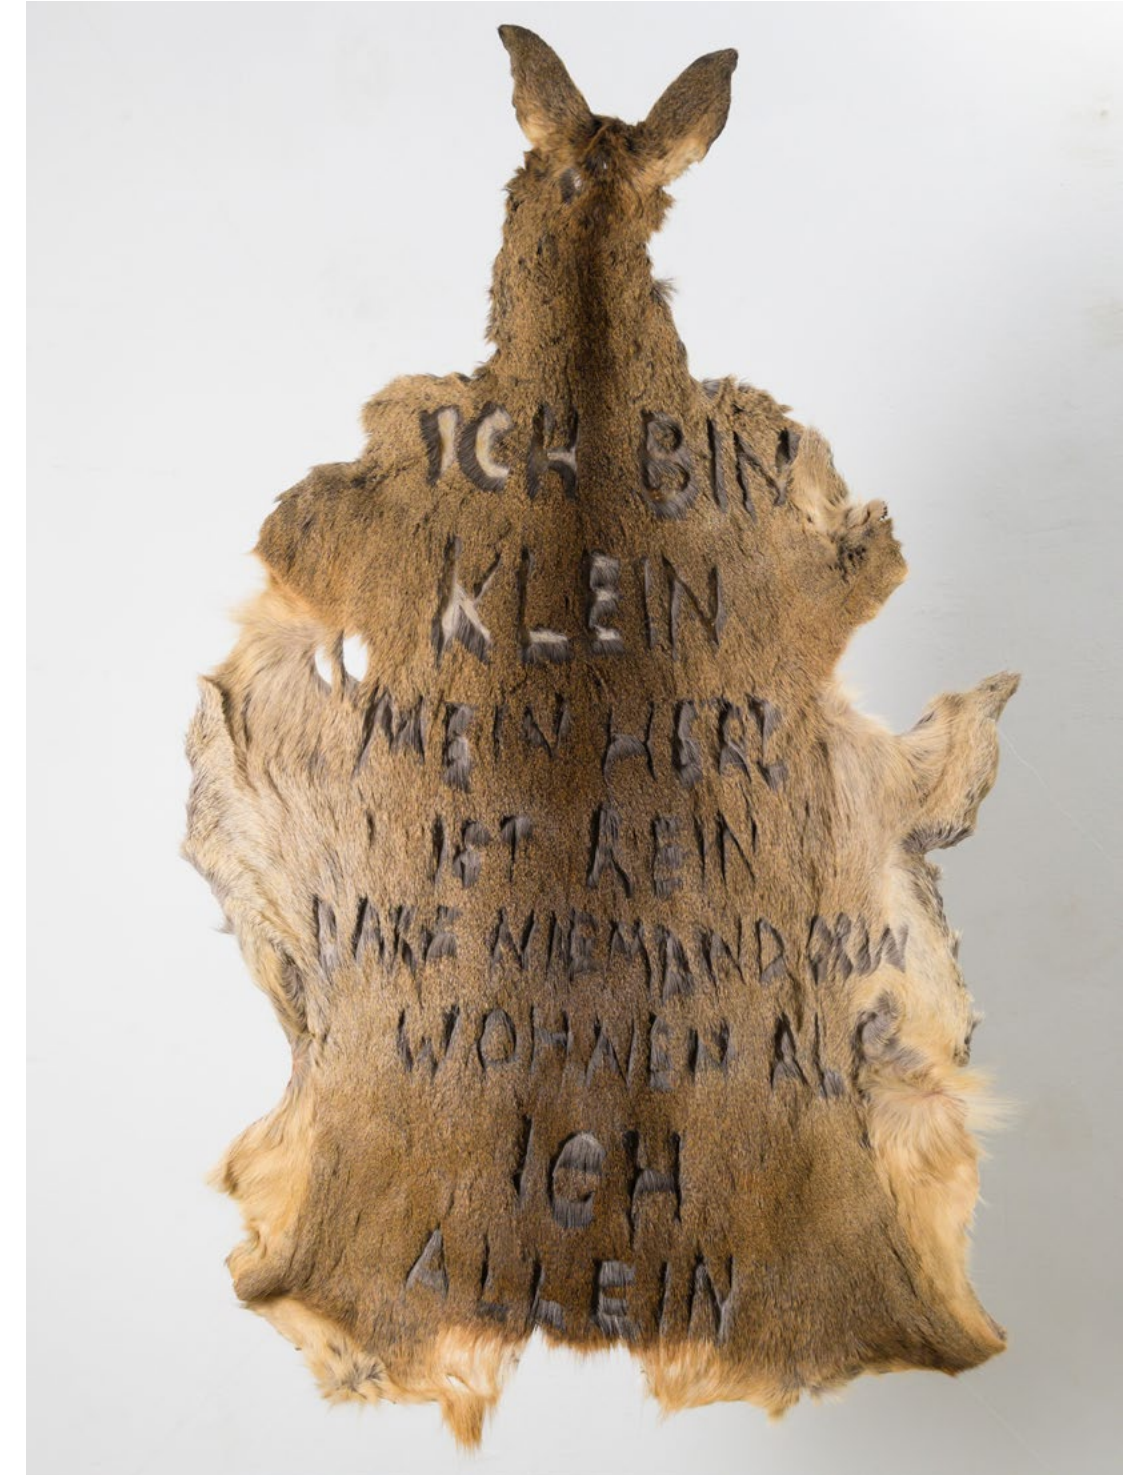 ICH BIN
KLEIN
MEIN HERZ
IST REIN
DARF NIEMAND DRIN
WOHNEN ALS
ICH
ALLEIN